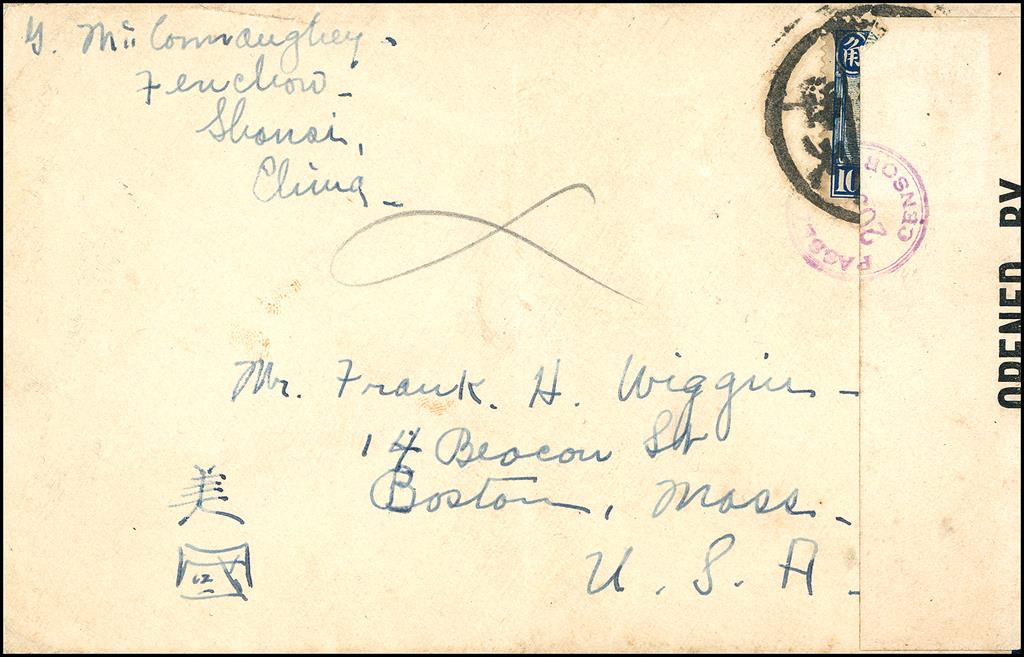 G. McConnaughey.
Fenchow -
Shansi,
China -
角
10
PASS
CENSOR
202
OPENED BY
Mr. Frank. H. Wiggin -
14 Beacon St
Boston, Mass -
U. S. A -
美
國